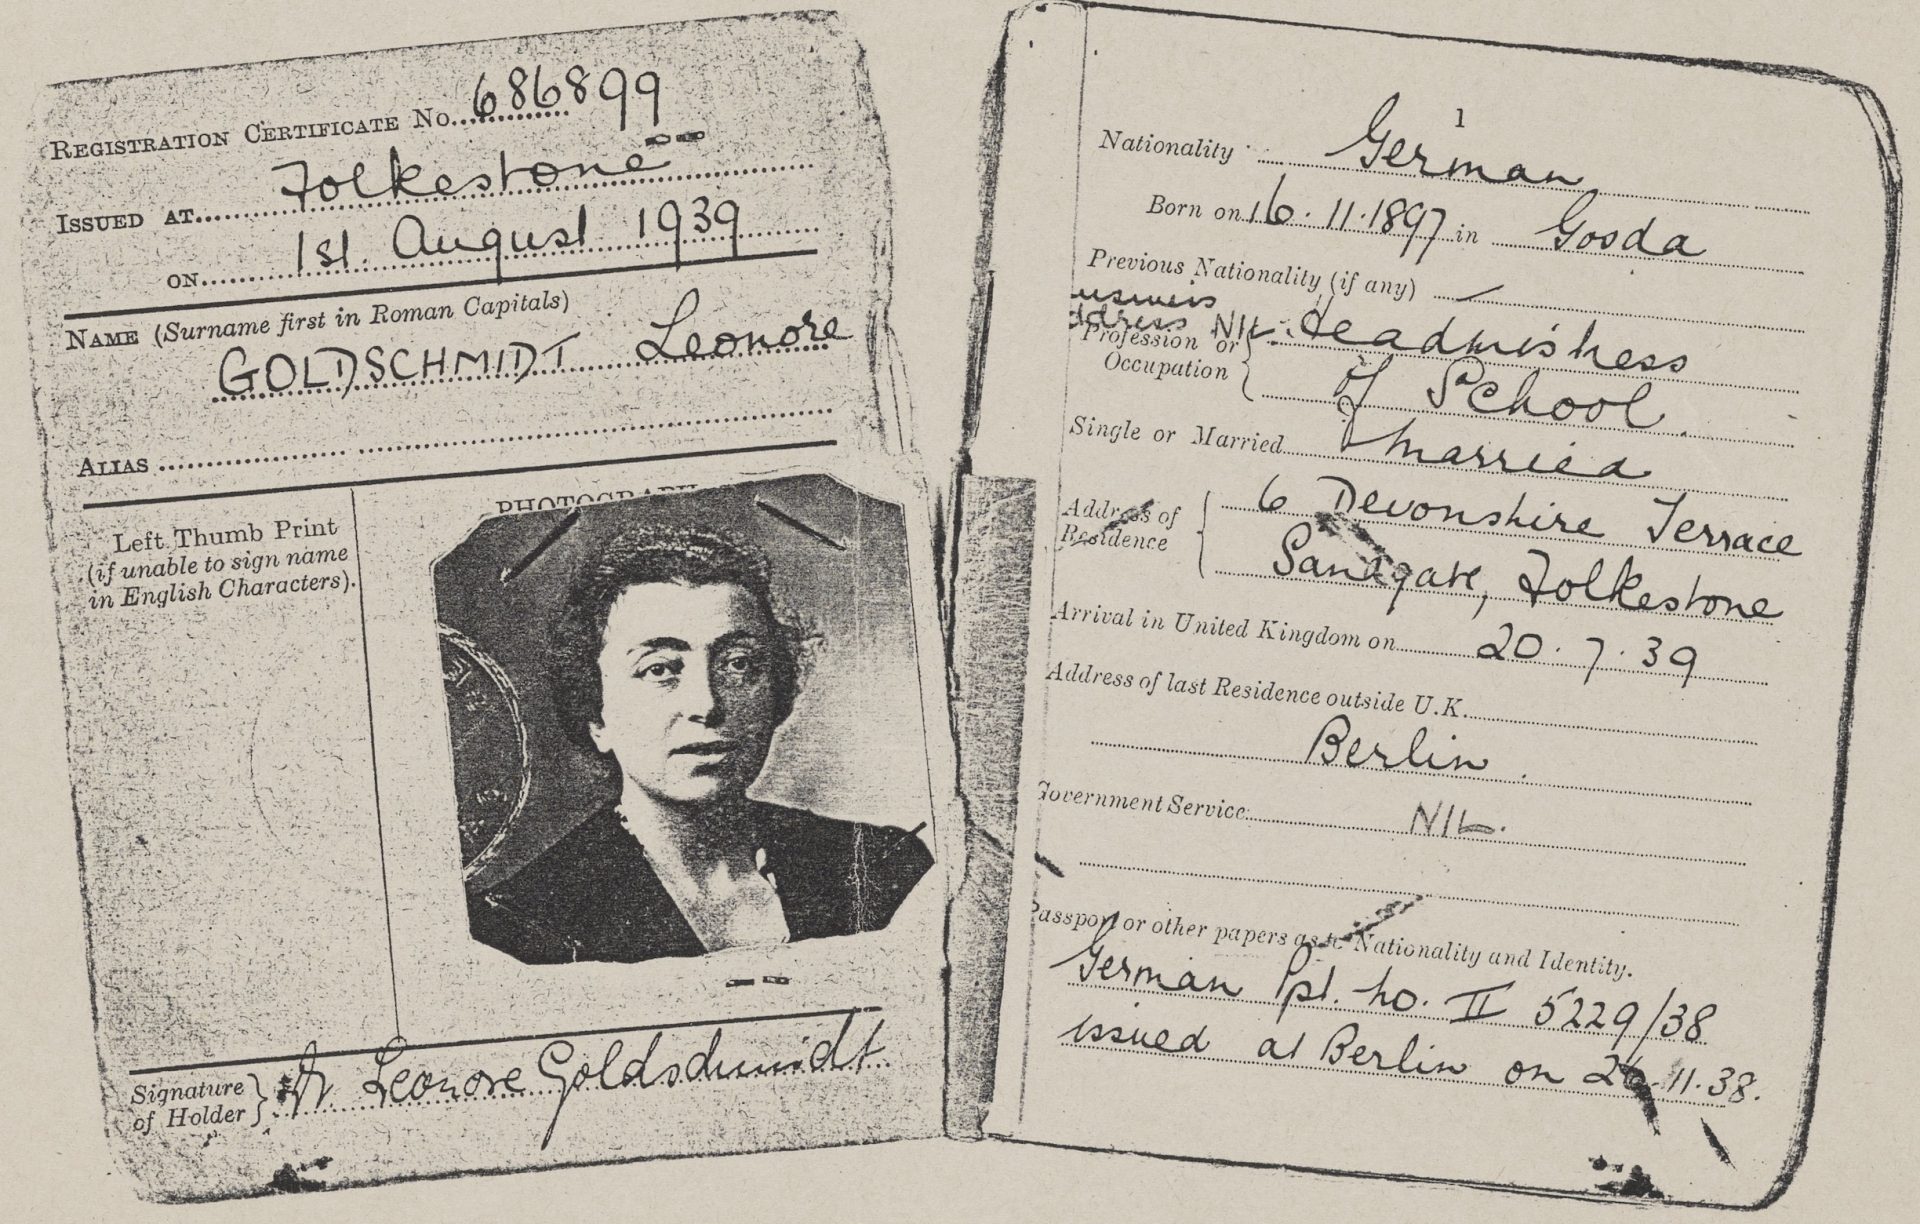 REGISTRATION CERTIFICATE No. 686899
ISSUED AT Folkestone
ON 1st. August 1939
NAME (Surname first in Roman Capitals)
GOLDSCHMIDT Leonore
ALIAS
PHOTOGRAPH
Left Thumb Print
(if unable to sign name
in English Characters).
Signature
of Holder } Dr Leonore Goldschmidt
1
Nationality German
Born on 16.11.1897 in Gosda
Previous Nationality (if any) —
Nil.
Profession or
Occupation { Headmistress
of School.
Single or Married Married
Address of
Residence { 6 Devonshire Terrace
Sandgate, Folkestone
Arrival in United Kingdom on 20.7.39
Address of last Residence outside U.K.
Berlin.
Government Service NIL.
Passport or other papers as to Nationality and Identity.
German Ppt. no. II 5229/38
issued at Berlin on 26.11.38.